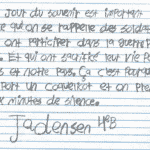 Jour du souvenir est important
ce qu'on se rappelle des soldats
ont participer dans la guerre
. Et qui ont sacrifié leur vie po
s et notre pays. Ça c'est pourquoi
port un coquelicot et on pre
x minutes de silence.
Jadensen H6B